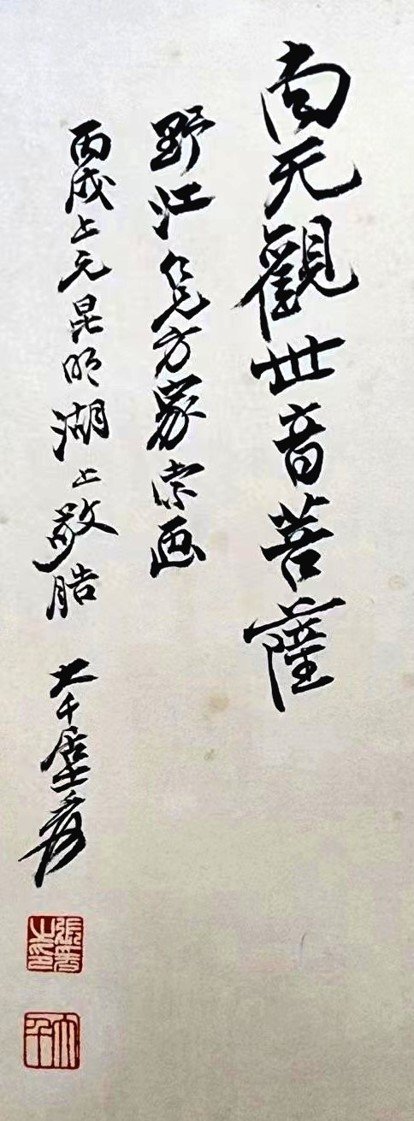 南无觀世音菩薩
野江仁兄方家索画
丙戌上元昆明湖上敬 大千居士爰
張爰之印
大千